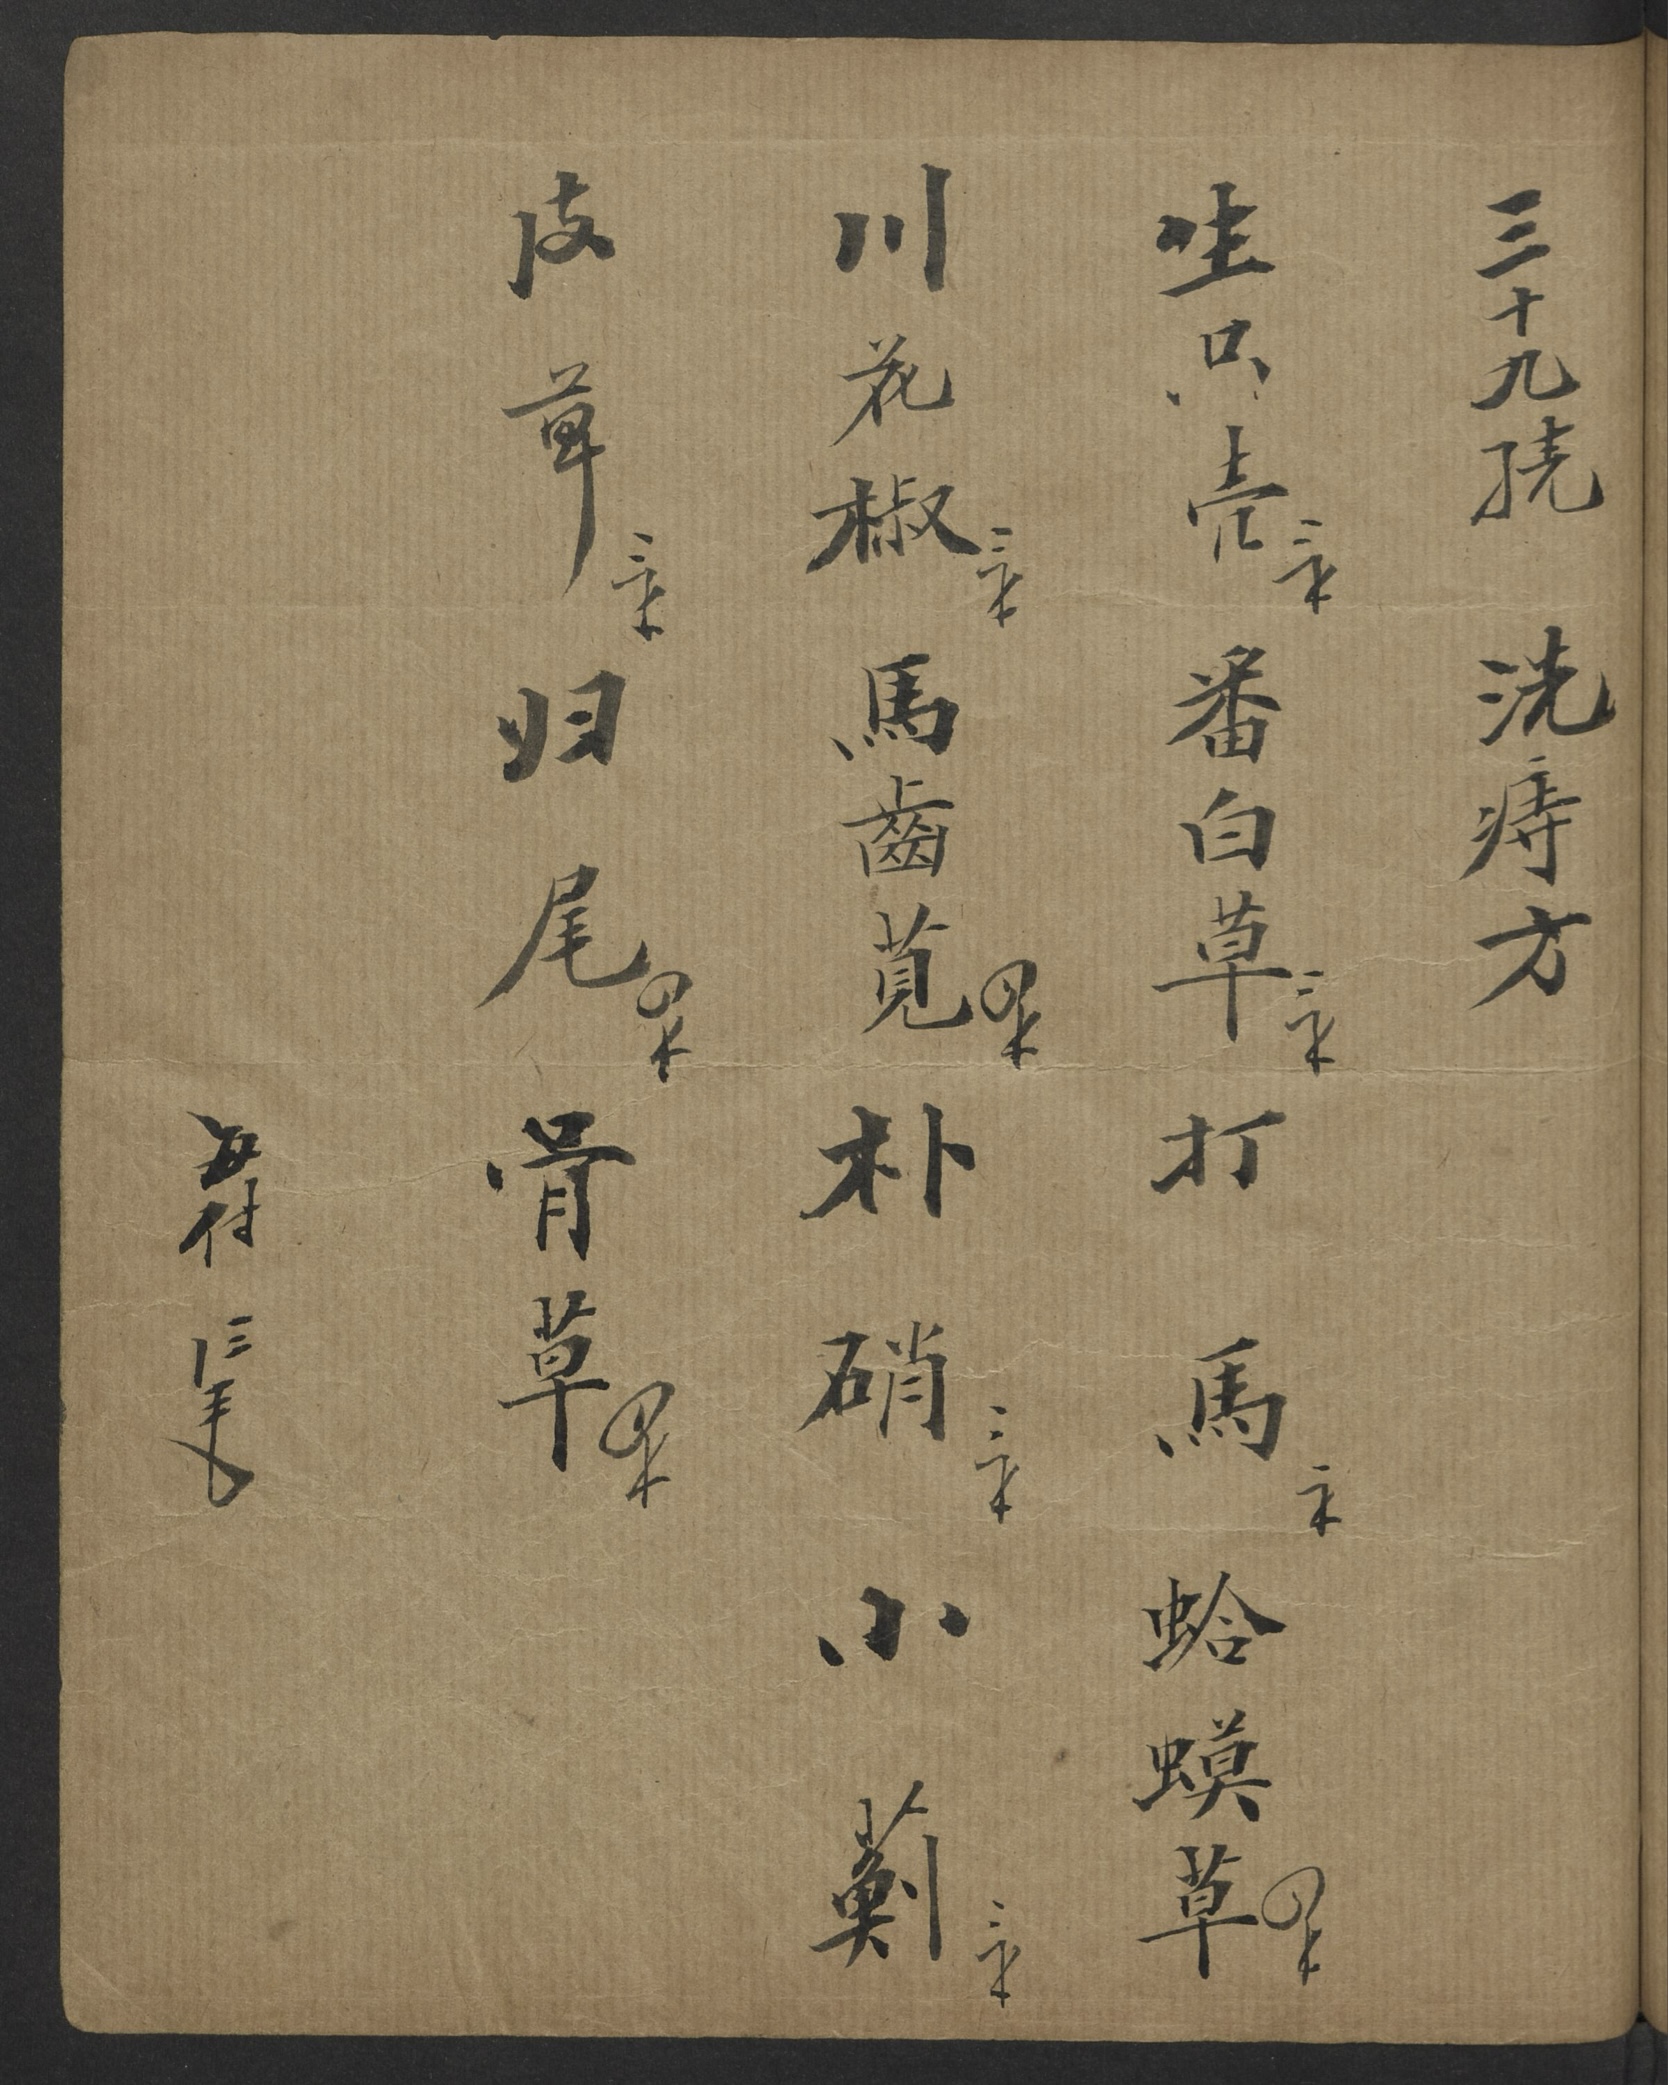 三十九 洗痔方
生只壳三钱 番白草三钱 打馬二钱 蛤蟆草四钱
川花椒三钱 馬齒莧四钱 朴硝三钱 小薊三钱
皮三钱 归尾四钱 骨草四钱
每付